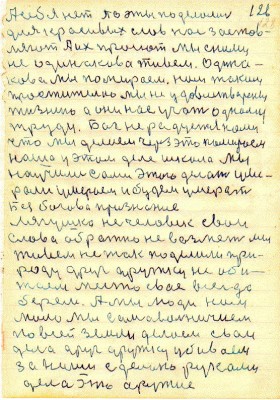 122
для красивых слов нас застав
ляют Их просют мы с ними
не одинаково живем. Одина
кова мы помираем, нам таким
простительно мы не удовлетворены
жизнью а они нас учат одному
труду. Бог не радуется нами
что мы делаем через это помираем
наша у этом деле школа мы
научили сами этого делать уми
рали умираем и будем умерать
Без богова признание
лягушка не человек свои
слова обратно не возмет мы
живем не так поделили при
роду друг дружку не оби
жаем место свое всегда
берем. А мы люди нам
мало мы самовольничаем
по всей земли делаем свои
дела друг дружку убиваем
за ними сделано руками
дела это оружие